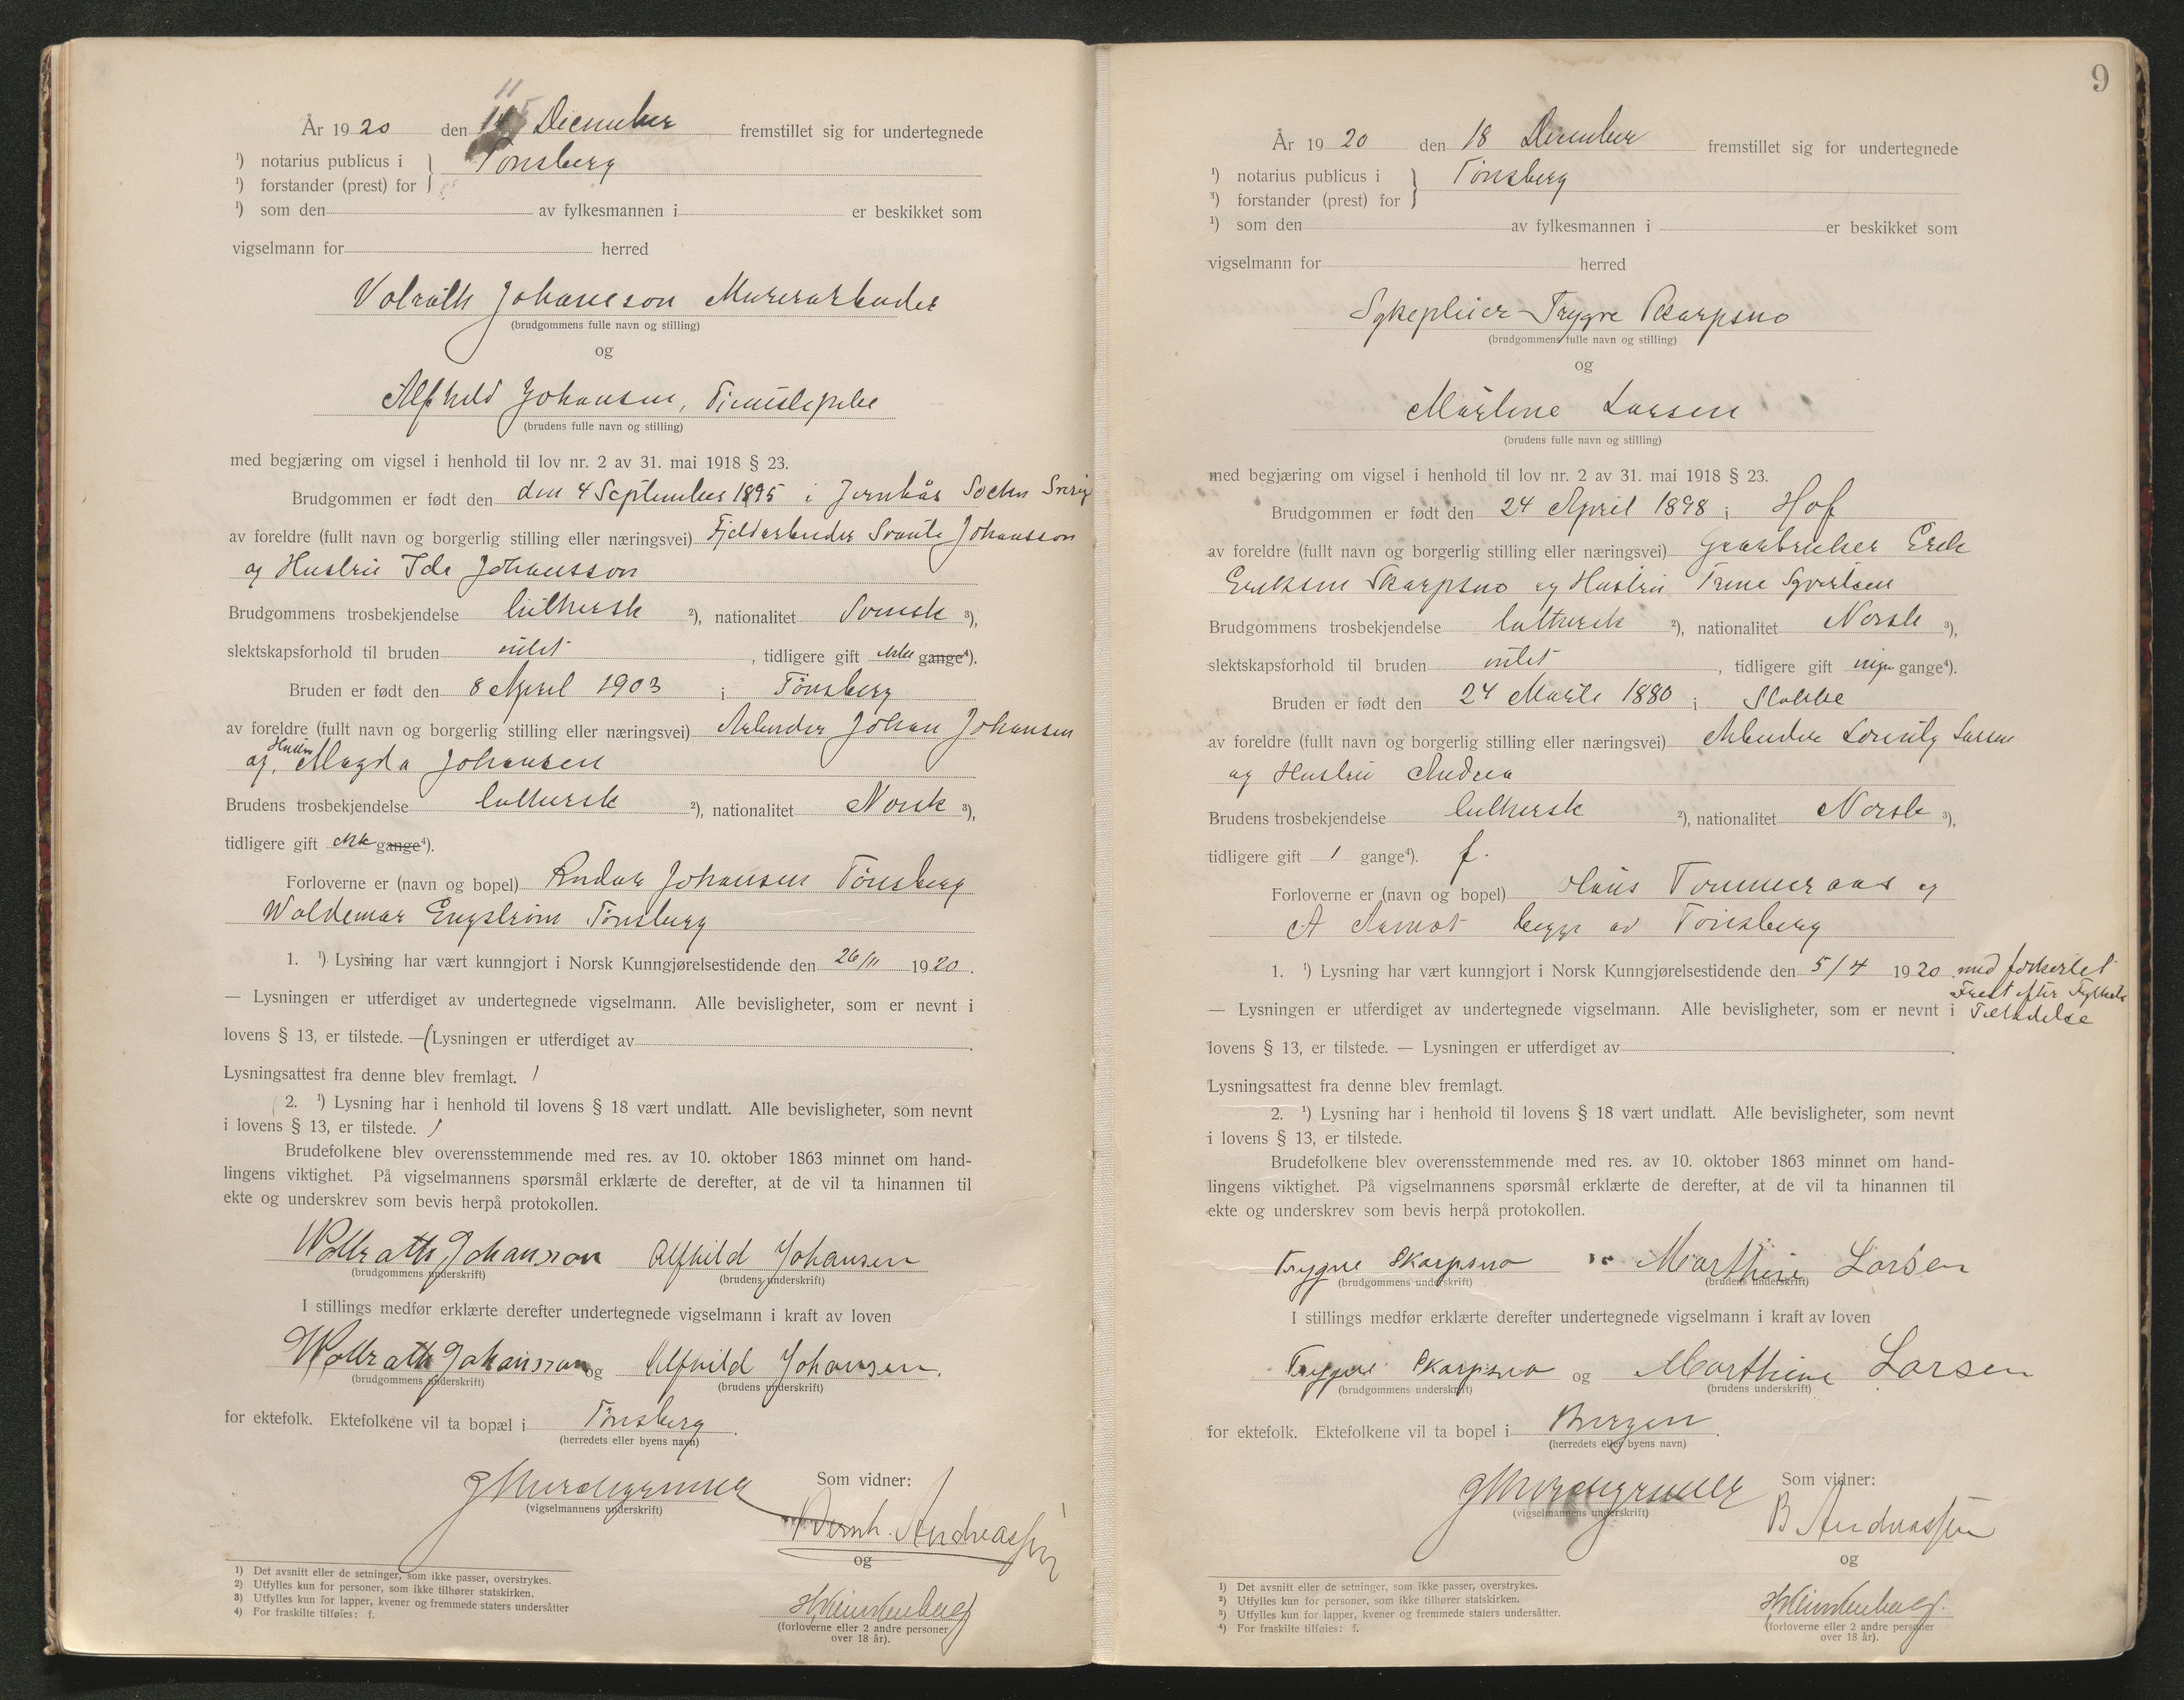 11
År 1920 den 11 December fremstillet sig for undertegnede
¹) notarius publicus i } Tønsberg
¹) forstander (prest) for
¹) som den av fylkesmannen i er beskikket som
vigselmann for herred
Volrath Johansson Murerarbeider
(brudgommens fulle navn og stilling)
og
Alfhild Johansen,
(brudens fulle navn og stilling)
med begjæring om vigsel i henhold til lov nr. 2 av 31. mai 1918 § 23.
Brudgommen er født den den 4 September 1895 i Socken Sverig
av foreldre (fullt navn og borgerlig stilling eller næringsvei) Fjeldarbeider Svante Johansson
og Hustru Ida Johansson
Brudgommens trosbekjendelse luthersk ²), nationalitet Svensk ³),
slektskapsforhold til bruden intet , tidligere gift ikke gange⁴).
Bruden er født den 8 April 1903 i Tønsberg
av foreldre (fullt navn og borgerlig stilling eller næringsvei) Arbeider Johan Johansen
og Hustru Magda Johansen
Brudens trosbekjendelse luthersk ²), nationalitet Norsk ³),
tidligere gift ikke gange⁴).
Forloverne er (navn og bopel) Johansen Tønsberg
Waldemar Engstrøm Tønsberg
1. ¹) Lysning har vært kunngjort i Norsk Kunngjørelsestidende den 26/11 1920.
— Lysningen er utferdiget av undertegnede vigselmann. Alle bevisligheter, som er nevnt i
lovens § 13, er tilstede. —(Lysningen er utferdiget av .
Lysningsattest fra denne blev fremlagt. )
(2. ¹) Lysning har i henhold til lovens § 18 vært undlatt. Alle bevisligheter, som nevnt
i lovens § 13, er tilstede. )
Brudefolkene blev overensstemmende med res. av 10. oktober 1863 minnet om hand-
lingens viktighet. På vigselmannens spørsmål erklærte de derefter, at de vil ta hinannen til
ekte og underskrev som bevis herpå protokollen.
Wollrath Johansson Alfhild Johansen
(brudgommens underskrift) (brudens underskrift)
I stillings medfør erklærte derefter undertegnede vigselmann i kraft av loven
Wollrath Johansson og Alfhild Johansen.
(brudgommens underskrift) (brudens underskrift)
for ektefolk. Ektefolkene vil ta bopæl i Tønsberg.
(herredets eller byens navn)
Som vidner:
(vigselmannens underskrift)
Bernh. Andreassen
og
(forloverne eller 2 andre personer
over 18 år).
1) Det avsnitt eller de setninger, som ikke passer, overstrykes.
2) Utfylles kun for personer, som ikke tilhører statskirken.
3) Utfylles kun for lapper, kvener og fremmede staters undersåtter
4) For fraskilte tilføies: f.
9
År 1920 den 18 December fremstillet sig for undertegnede
¹) notarius publicus i } Tønsberg
³) forstander (prest) for
¹) som den av fylkesmannen i er beskikket som
vigselmann for herred
Sykepleier Trygve Skarpsno
(brudgommens fulle navn og stilling)
og
Martine Larsen
(brudens fulle navn og stilling)
med begjæring om vigsel i henhold til lov nr. 2 av 31. mai 1918 § 23.
Brudgommen er født den 24 April 1898 i Hof
av foreldre (fullt navn og borgerlig stilling eller næringsvei) Gaardbruker Erik
Eriksen Skarpsno og Hustru Trine Syvertsen
Brudgommens trosbekjendelse luthersk ²), nationalitet Norsk ³),
slektskapsforhold til bruden intet , tidligere gift ingen gange⁴).
Bruden er født den 24 Marts 1880 i Slobbe
av foreldre (fullt navn og borgerlig stilling eller næringsvei) Arbeider Larsen
og Hustru Andrea
Brudens trosbekjendelse luthersk ²), nationalitet Norsk ³),
tidligere gift 1 gange⁴). f.
Forloverne er (navn og bopel) Olaus Tommeraas og
A Aamot begge av Tønsberg
1. ¹) Lysning har vært kunngjort i Norsk Kunngjørelsestidende den 5/4 1920 med forkortet
Frist efter Fylkets
— Lysningen er utferdiget av undertegnede vigselmann. Alle bevisligheter, som er nevnt i Tilladelse
lovens § 13, er tilstede. — Lysningen er utferdiget av .
Lysningsattest fra denne blev fremlagt.
2. ¹) Lysning har i henhold til lovens § 18 vært undlatt. Alle bevisligheter, som nevnt
i lovens § 13, er tilstede.
Brudefolkene blev overensstemmende med res. av 10. oktober 1863 minnet om hand-
lingens viktighet. På vigselmannens spørsmål erklærte de derefter, at de vil ta hinannen til
ekte og underskrev som bevis herpå protokollen.
Trygve Skarpsno Marthine Larsen
(brudgommens underskrift) (brudens underskrift)
I stillings medfør erklærte derefter undertegnede vigselmann i kraft av loven
Trygve Skarpsno og Marthine Larsen
(brudgommens underskrift) (brudens underskrift)
for ektefolk. Ektefolkene vil ta bopel i Bergen.
(herredets eller byens navn)
Som vidner:
(vigselmannens underskrift)
B Andreassen
og
(forloverne eller 2 andre personer
over 18 år).
¹) Det avsnitt eller de setninger, som ikke passer, overstrykes.
²) Utfylles kun for personer, som ikke tilhører statskirken.
³) Utfylles kun for lapper, kvener og fremmede staters undersåtter.
⁴) For fraskilte tilføies: f.